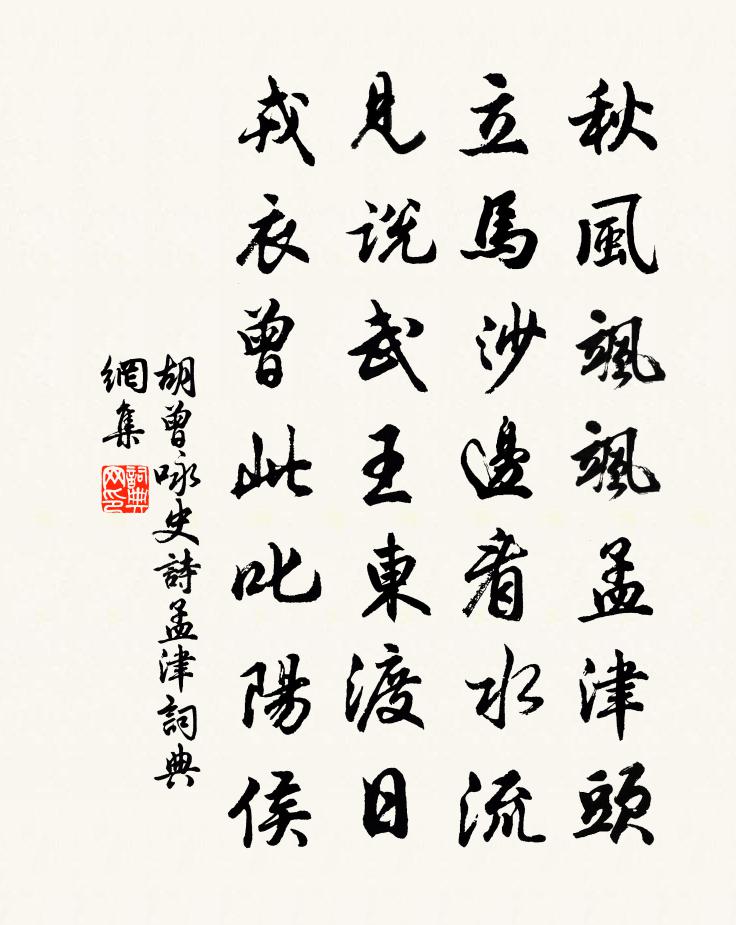 秋風颯颯孟津頭
立馬沙邊看水流
見說武王東渡日
戎衣曾此叱陽侯
胡曾咏史詩孟津詞典
網集
詞典网印